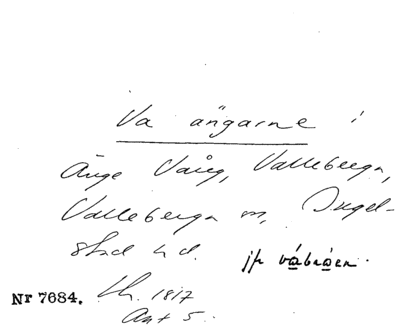 Va ängarne i
Änge Vång, Valleberga,
Valleberga sn, Ingel-
stad hd. jfr våbråen.
Nr 7684. Lh. 1817
Akt 5.